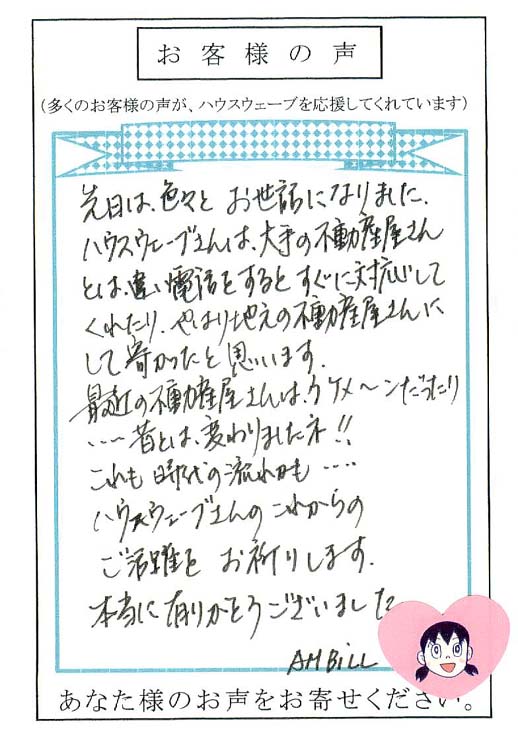 お客様の声
(多くのお客様の声が、ハウスウェーブを応援してくれています)
先日は、色々と お世話になりました.
ハウスウェーブさんは、大手の不動産屋さん
とは、違い電話をするとすぐに対応して
くれたり、やはり地元の不動産屋さんに
して寄かったと思います.
最近の不動産屋さんは、イケメ〜ンだったり
……昔とは、変わりましたネ!!
これも時代の流れかも……
ハウスウェーブさんのこれからの
ご活躍を お祈りします.
本当に有りがとうございました
AM BiLL
あなた様のお声をお寄せください。